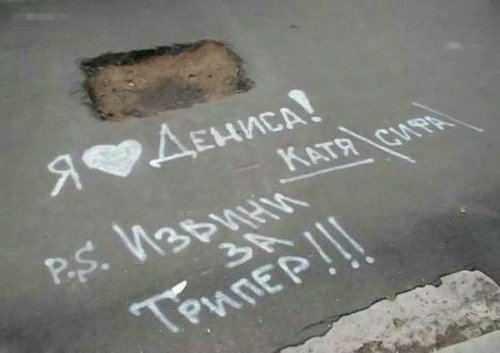 Я ♥ Дениса!
Катя\Сифа\
P.S. Извини
за
Трипер!!!